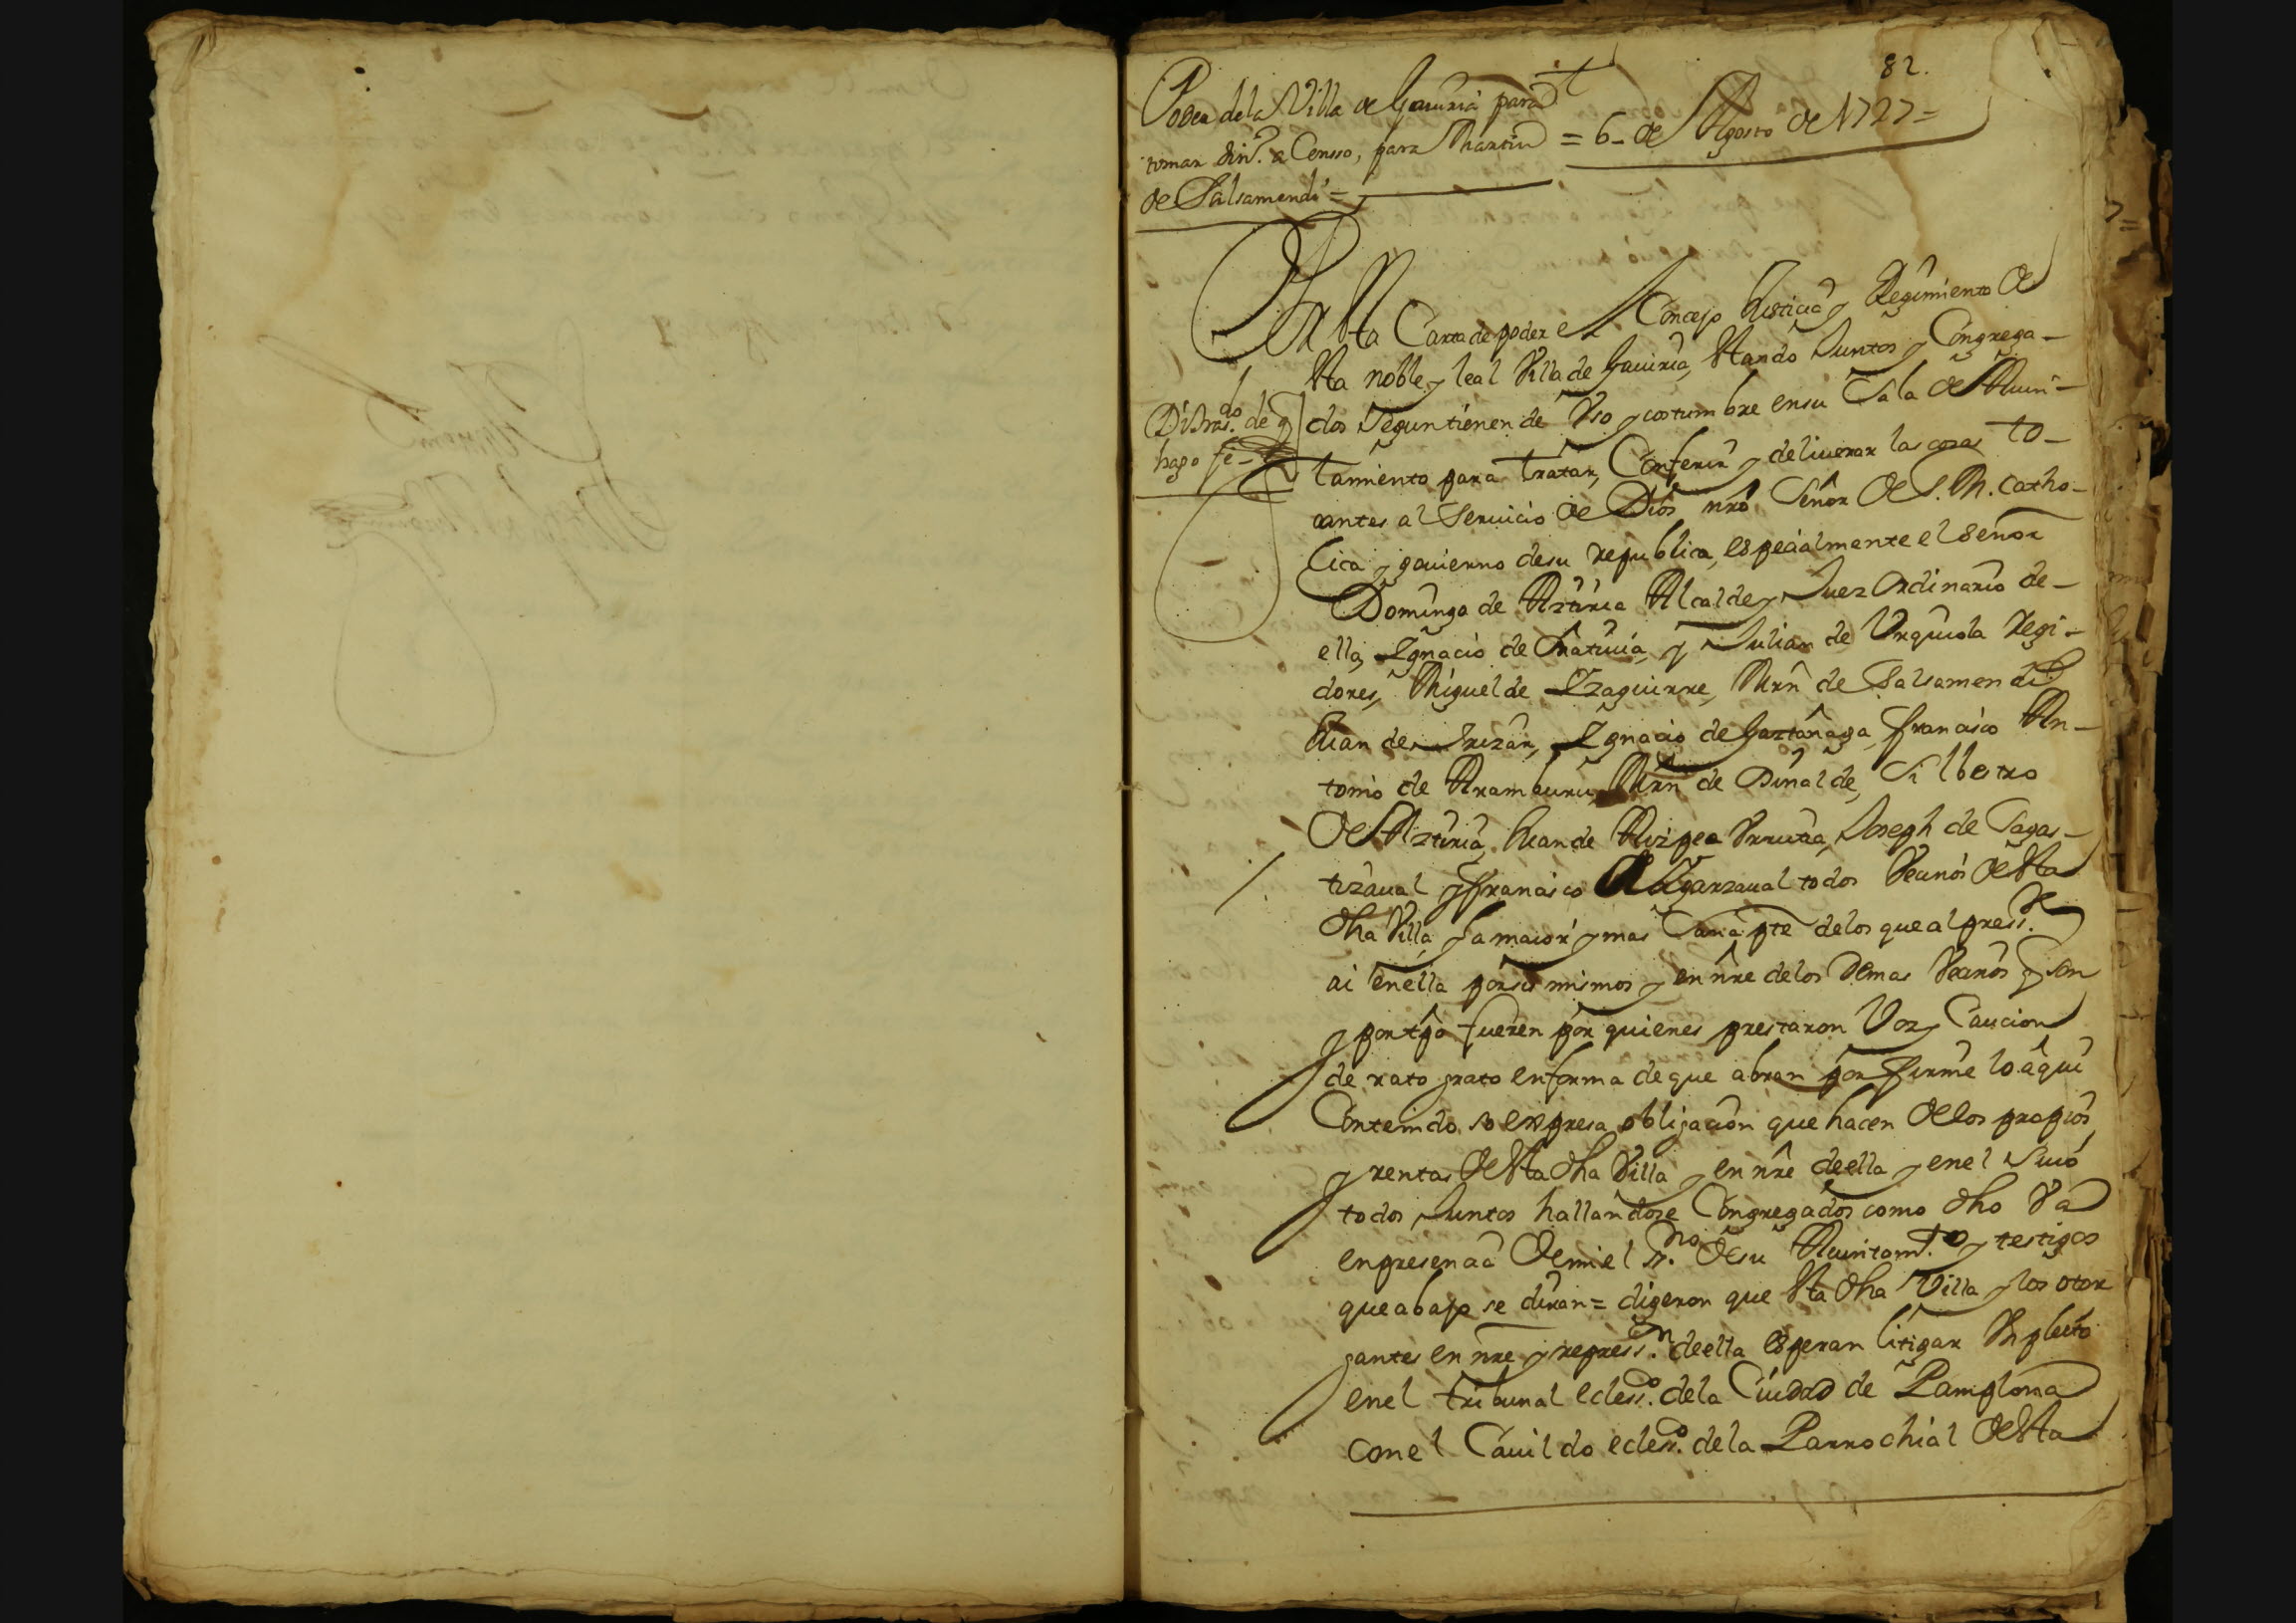 82.
Poder de la Villa de Gauiria para
tomar din.º a Censso, para Martin = 6 – de Agosto de 1727 =
de Salsamendi =
Por esta Carta de poder el Concejo Justicia y Regimiento de
esta noble y leal Villa de Gauiria, estando Juntos y Congrega-
dos Segun tienen de Vso y costumbre en su Sala de Aiun-
tamiento para tratar, Conferir y deliuerar las cosas to-
cantes al Seruicio de Dios nrô Señor de S. M. catho-
lica y gouierno de su republica, especialmente el Señor
Domingo de Azturia Alcalde y Juez Ordinario de-
ella, Ygnacio de y Julian de Vrquiola Regi-
dores, Miguel de Yzaguirre, Mrñ de Salsamendi
Juan de Irizar, Ygnacio de Gaztañaga, Francisco An-
tonio de Aramburu, Mrñ de Silbestro
de Azturia, Juan de Aizpea Vrrutia, Joseph de Sagas-
tizaual y Francisco de Ygarzaual todos Veçinos de esta
dha Villa y la maior y mas Sana pte de los que al press.te
ai en ella por si mismos y en nre de los Demas Veçinos q son
y por tpo fueren por quienes prestaron Voz y Caucion
de rato grato en forma de que abran por firme lo aqui
Contenido, so expresa obligacion que hacen de los propios,
y rentas de esta dha Villa y en nre de ella y en el Suio
todos Juntos hallandose Congregados como dho Va
en presencia de mi el ss.no de su Aiuntam.to y testigos
que abajo se diran = digeron que esta dha Villa y los otor
gantes en nre y repress.on de ella esperan litigar Vn pleito
en el tribunal ecless.co de la Ciudad de Pamplona
con el Cauildo ecless.co de la Parrochial de esta
Dístras.do de q
hago fe –